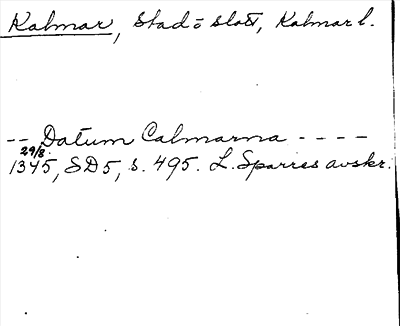 Kalmar, Stad o slott, Kalmar l.
-- Datum Calmarna ----
29/8.
1345, SD5, s. 495. L. Sparres avskr.